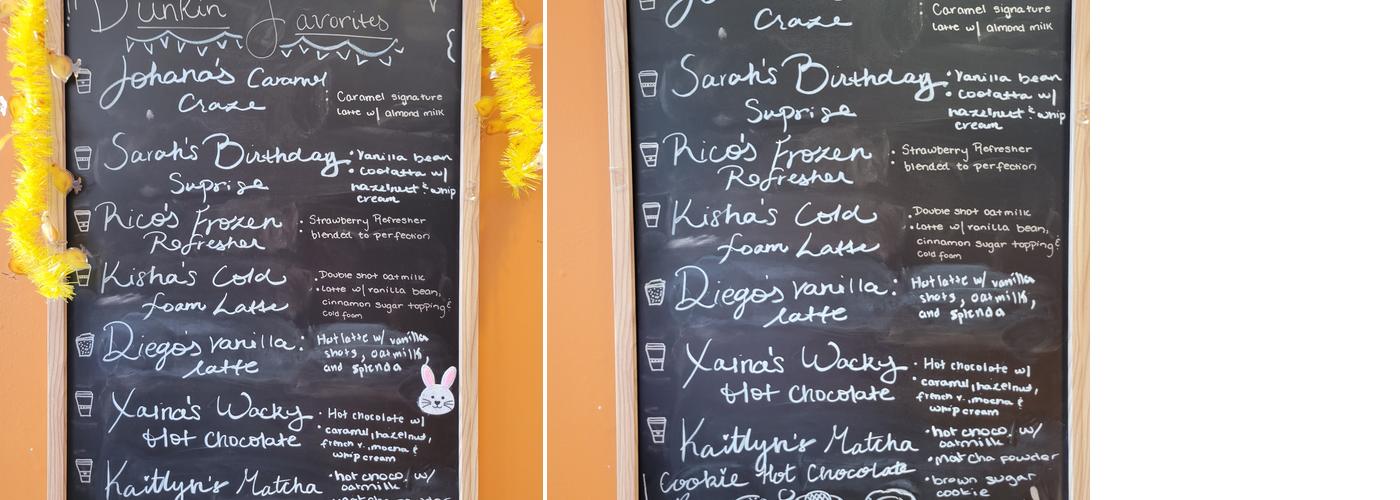 Dunkin Favorites
Johana's Caramel
Craze
: Caramel signature
latte w/ almond milk
Sarah's Birthday
Suprise
• Vanilla bean
• Coolatta w/
hazelnut & whip
cream
Rico's Frozen
Refresher
: Strawberry Refresher
blended to perfection
Kisha's Cold
foam Latte
• Double shot oatmilk
• Latte w/ vanilla bean,
cinnamon sugar topping &
cold foam
Diego's vanilla:
latte
Hot latte w/ vanilla
shots, oatmilk,
and splenda
Xaina's Wacky
Hot Chocolate
• Hot chocolate w/
• caramel, hazelnut,
french v., mocha &
whip cream
Kaitlyn's Matcha
• hot choco. w/
oatmilk
• matcha powder
Craze
Caramel signature
latte w/ almond milk
Sarah's Birthday
Suprise
• Vanilla bean
• Coolatta w/
hazelnut & whip
cream
Rico's Frozen
Refresher
: Strawberry Refresher
blended to perfection
Kisha's Cold
foam Latte
• Double shot oatmilk
• Latte w/ vanilla bean,
cinnamon sugar topping &
cold foam
Diego's vanilla:
latte
Hot latte w/ vanilla
shots, oatmilk,
and splenda
Xaina's Wacky
Hot Chocolate
• Hot chocolate w/
• caramel, hazelnut,
french v., mocha &
whip cream
Kaitlyn's Matcha
Cookie Hot Chocolate
• hot choco. w/
oatmilk
• Matcha powder
• brown sugar
cookie